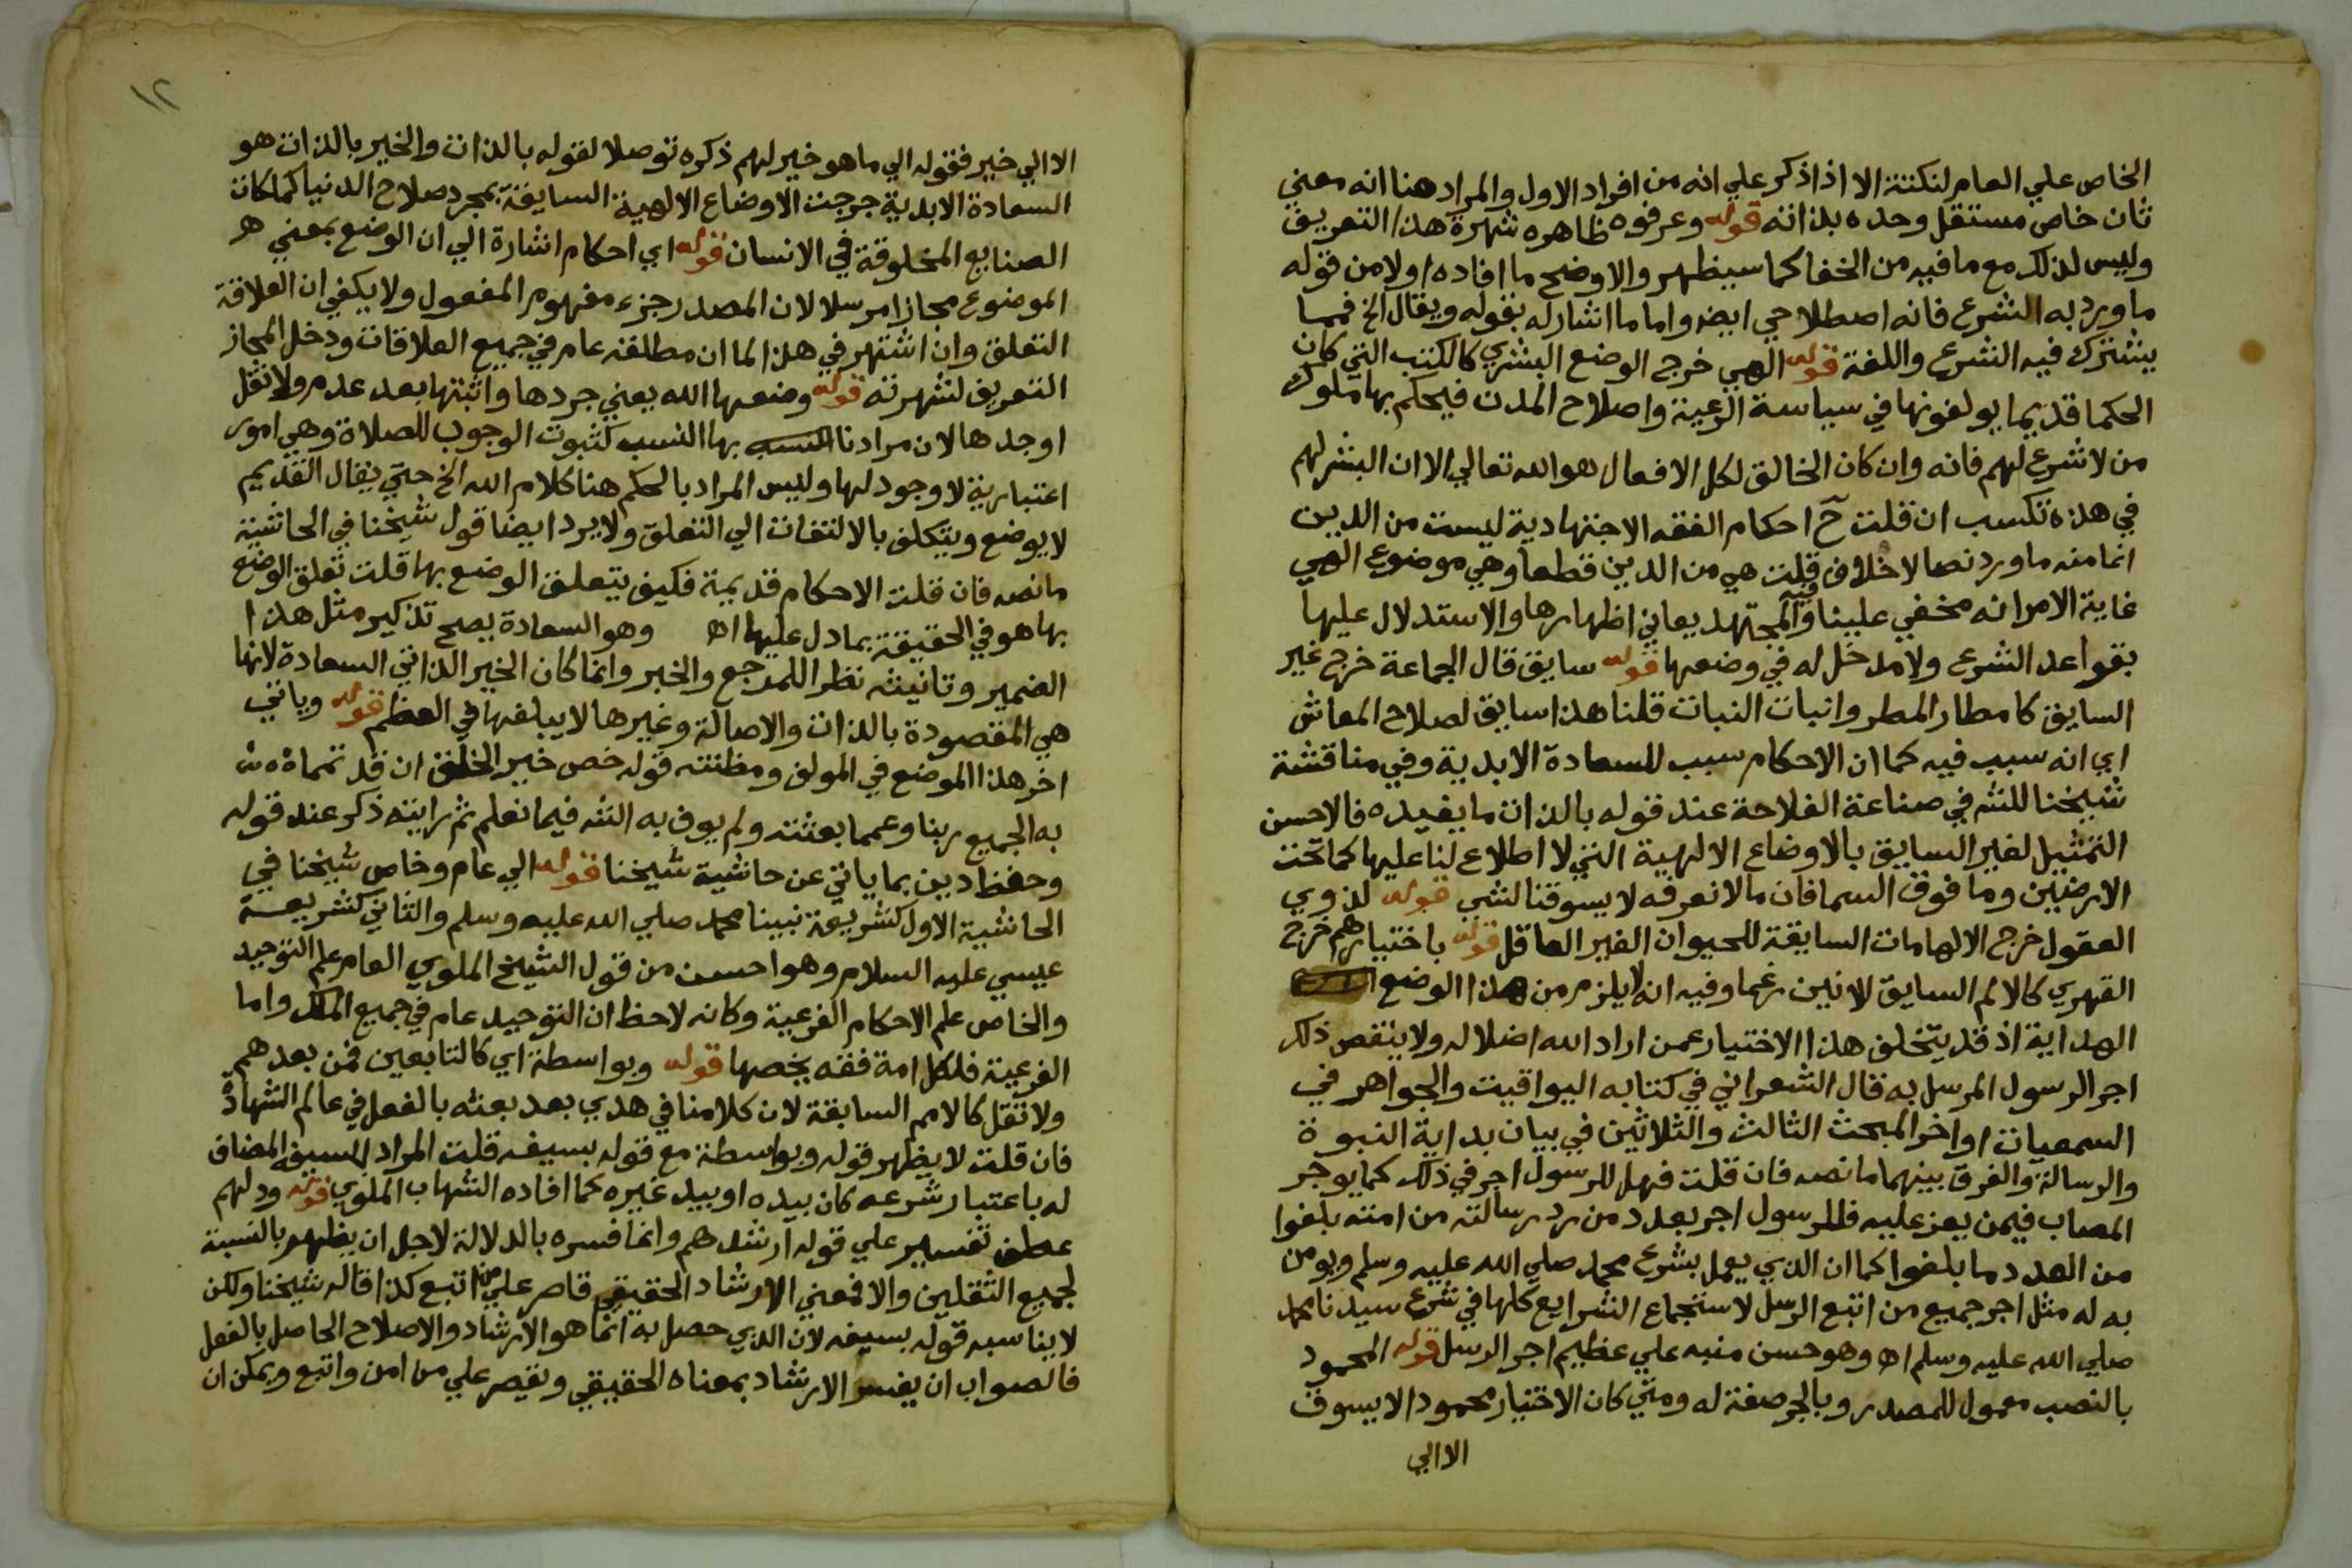 الخاص علي العام لنكتة الا اذا ذكر علي انه من افراد الاول والمراد هنا انه معني
ثان خاص مستقل وحده بذاته قوله وعرفوه ظاهره شهرة هذا التعريف
وليس لذلك مع ما فيه من الخفا كما سيظهر والاوضح ما افاده اولا من قوله
ما ورد به الشرع فانه اصطلاحي ايضا واما ما اشار له بقوله ويقال الخ فمما
يشترك فيه الشرع واللغة قوله الهي خرج الوضع البشري كالكتب التي كان
الحكما قديما يولفونها في سياسة الرعية واصلاح المدن فيحكم بها ملوك
من لا شرع لهم فانه وان كان الخالق لكل الافعال هو الله تعالي الا ان البشر لهم
في هذه تكسب ان قلت ح احكام الفقه الاجتهادية ليست من الدين
انما منه ما ورد نصا لا خلاف فيه قلت هي من الدين قطعا وهي موضوع الهي
غاية الامر انه مخفي علينا والمجتهد يعاني اظهارها والاستدلال عليها
بقواعد الشرع ولا مدخل له في وضعها قوله سايق قال الجماعة خرج غير
السايق كامطار المطر وانبات النبات قلنا هذا سايق لصلاح المعاش
اي انه سبب فيه كما ان الاحكام سبب للسعادة الابدية وفي مناقشة
شيخنا للشه في صناعة الفلاحة عند قوله بالذات ما يفيده فالاحسن
التمثيل لغير السايق بالاوضاع الالهية التي لا اطلاع لنا عليها كما تحت
الارضين وما فوق السما فان ما لا نعرفه لا يسوقنا لشي قوله لذوي
العقول خرج الالهامات السايقة للحيوان الغير العاقل قوله باختيارهم خرج
القهري كالالم السايق للانين رغما وفيه انه لا يلزم من هذا الوضع
الهداية اذ قد يتخلف هذا الاختيار عمن اراد الله اضلاله ولا ينقص ذلك
اجر الرسول المرسل به قال الشعراني في كتابه اليواقيت والجواهر في
السمعيات اواخر المبحث الثالث والثلاثين في بيان بداية النبوة
والرسالة والفرق بينهما ما نصه فان قلت فهل للرسول اجر في ذلك كما يوجر
المصاب فيمن يعز عليه فللرسول اجر بعدد من رد رسالته من امته بلغوا
من العدد ما بلغوا كما ان الذي يعمل بشرع محمد صلي الله عليه وسلم ويومن
به له مثل اجر جميع من اتبع الرسل لاستجماع الشرايع كلها في شرع سيدنا محمد
صلي الله عليه وسلم اه وهو حسن منبه علي عظيم اجر الرسل قوله المحمود
بالنصب معمول للمصدر وبالجر صفة له ومتي كان الاختيار محمودا لا يسوق
الا الي
١٢
الا الي خير فقوله الي ما هو خير لهم ذكره توصلا لقوله بالذات والخير بالذات هو
السعادة الابدية خرجت الاوضاع الالهية السايقة بمجرد صلاح الدنيا كما كانت
الصنايع المخلوقة في الانسان قوله اي احكام اشارة الي ان الوضع بمعني
الموضوع مجازا مرسلا لان المصدر جزء مفهوم المفعول ولا يكفي ان العلاقة
التعلق وان اشتهر في هذا لما ان مطلقه عام في جميع العلاقات ودخل المجاز
التعريف لشهرته قوله وضعها الله يعني جردها واثبتها بعد عدم ولا تقل
اوجدها لان مرادنا بها النسب كثبوت الوجوب للصلاة وهي امور
اعتبارية لا وجود لها وليس المراد بالحكم هنا كلام الله الخ حتي يقال القديم
لا يوضع ويتكلف بالالتفات الي التعلق ولا يرد ايضا قول شيخنا في الحاشية
ما نصه فان قلت الاحكام قديمة فكيف يتعلق الوضع بها قلت تعلق الوضع
بها هو في الحقيقة بما دل عليها اه وهو السعادة يصح تذكير مثل هذا
الضمير وتانيثه نظرا للمرجع والخبر وانما كان الخير الذاتي السعادة لانها
هي المقصودة بالذات والاصالة وغيرها لا يبلغها في العظم قوله وياتي
اخر هذا الموضع في المولف ومظنته قوله خص خير الخلق ان قد تمما
به الجميع ربنا وعمما بعثته ولم يوف به الشه فيما نعلم ثم رايته ذكر عند قوله
وحفظ دين بما ياتي عن حاشية شيخنا قوله الي عام وخاص شيخنا في
الحاشية الاول كشريعة نبينا محمد صلي الله عليه وسلم والثاني كشريعة
عيسي عليه السلام وهو احسن من قول الشيخ الملوي العام علم التوحيد
والخاص علم الاحكام الفرعية وكانه لاحظ ان التوحيد عام في جميع الملل واما
الفرعية فلكل امة فقه يخصها قوله وبواسطة اي كالتابعين فمن بعدهم
ولا تقل كالامم السابقة لان كلامنا في هدي بعد بعثه بالفعل في عالم الشهادة
فان قلت لا يظهر قوله وبواسطة مع قوله بسيفه قلت المراد السيف المضاف
له باعتبار شرعه كان بيده او بيد غيره كما افاده الشهاب الملوي قوله ودلهم
عطف تفسير علي قوله ارشدهم وانما فسره بالدلالة لاجل ان يظهر بالنسبة
لجميع الثقلين والا فمعني الارشاد الحقيقي قاصر علي من اتبع كذا قاله شيخنا ولكن
لا يناسبه قوله بسيفه لان الذي حصل به انما هو الارشاد والاصلاح الحاصل بالفعل
فالصواب ان يفسر الارشاد بمعناه الحقيقي ويقصر علي من امن واتبع ويمكن ان